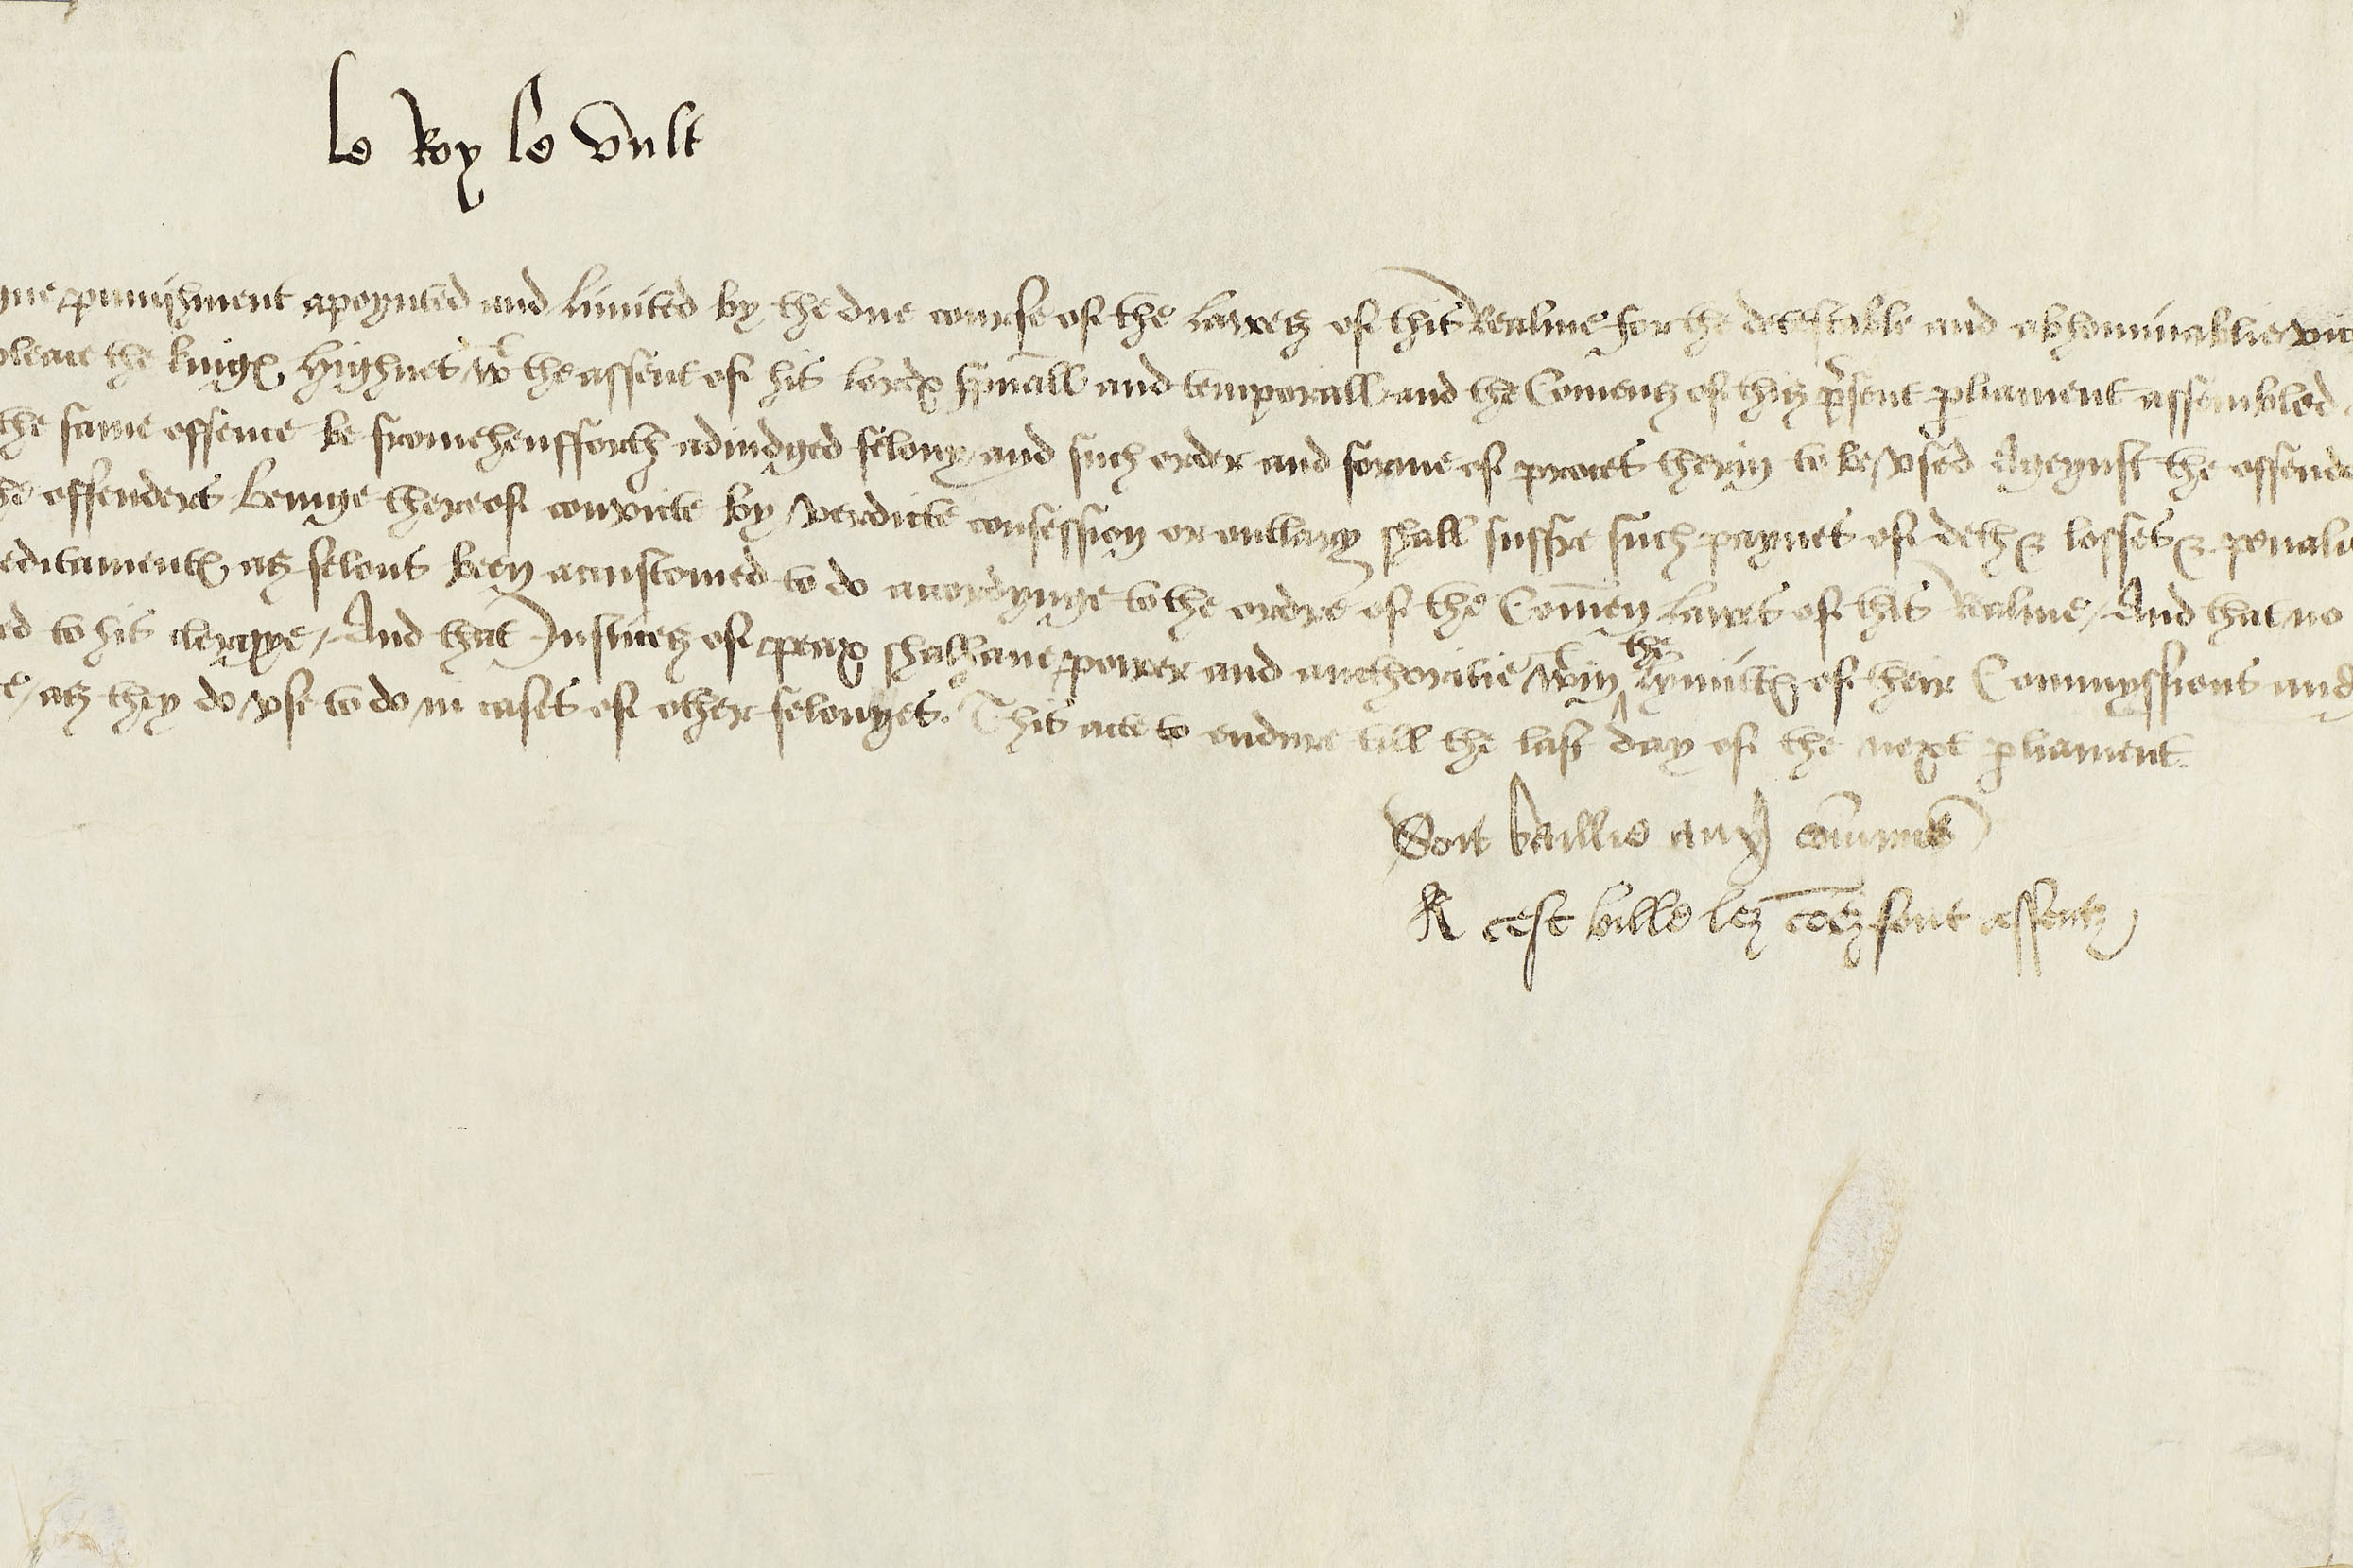 le Roy le vult
punishment apoynted and limited by the due course of the lawez of this Realme for the detestable and abhominable vic
the kingꝭ Highnes wt the assent of his lordꝭ spuall and temporall and the Comenz of this prsent pliament assembled
the same offence be fromehensforth adiudged felony and such order and forme of proces therin to be vsed ageynst the offend
offenders beinge thereof convicte by verdicte confession or outlary shall suffre such paynes of deth & losses & penali
editamentꝭ as felons been acustomed to do accordynge to the ordre of the Comen lawes of this Realme / And that no
ed to his clergye / And that Justices of peax shall haue power and aucthoritie wtin the lymittꝭ of their Commyssions and
as they do vse to do in cases of other felonyes. This acte to endure till the last day of the next pliament.
Soit baille aux comunes
A cest bille lez coez sont assentz